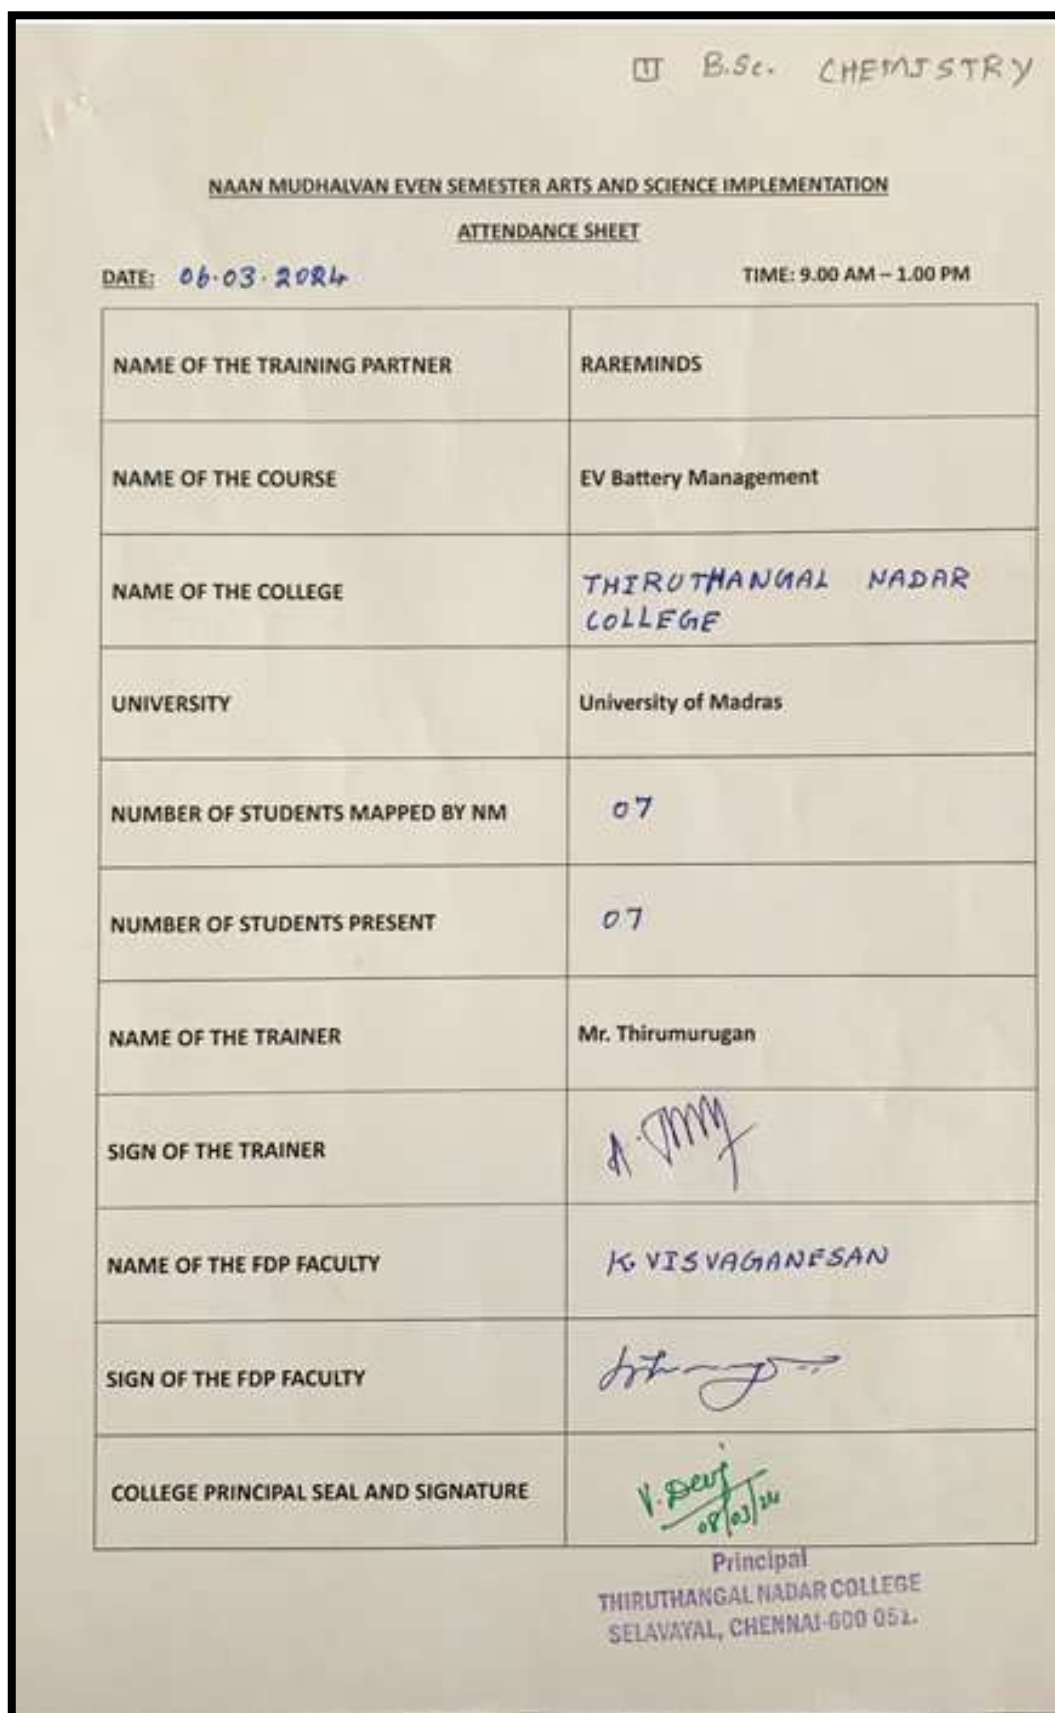 1 B.Sc. CHEMISTRY
NAAN MUDHALVAN EVEN SEMESTER ARTS AND SCIENCE IMPLEMENTATION
ATTENDANCE SHEET
DATE: 06.03.2024 TIME: 9.00 AM – 1.00 PM
NAME OF THE TRAINING PARTNER RAREMINDS
NAME OF THE COURSE EV Battery Management
NAME OF THE COLLEGE THIRUTHANGAL NADAR
COLLEGE
UNIVERSITY University of Madras
NUMBER OF STUDENTS MAPPED BY NM 07
NUMBER OF STUDENTS PRESENT 07
NAME OF THE TRAINER Mr. Thirumurugan
SIGN OF THE TRAINER
NAME OF THE FDP FACULTY K. VISVAGANESAN
SIGN OF THE FDP FACULTY
COLLEGE PRINCIPAL SEAL AND SIGNATURE V. Devi
08/03/24
Principal
THIRUTHANGAL NADAR COLLEGE
SELAVAYAL, CHENNAI-600 051.